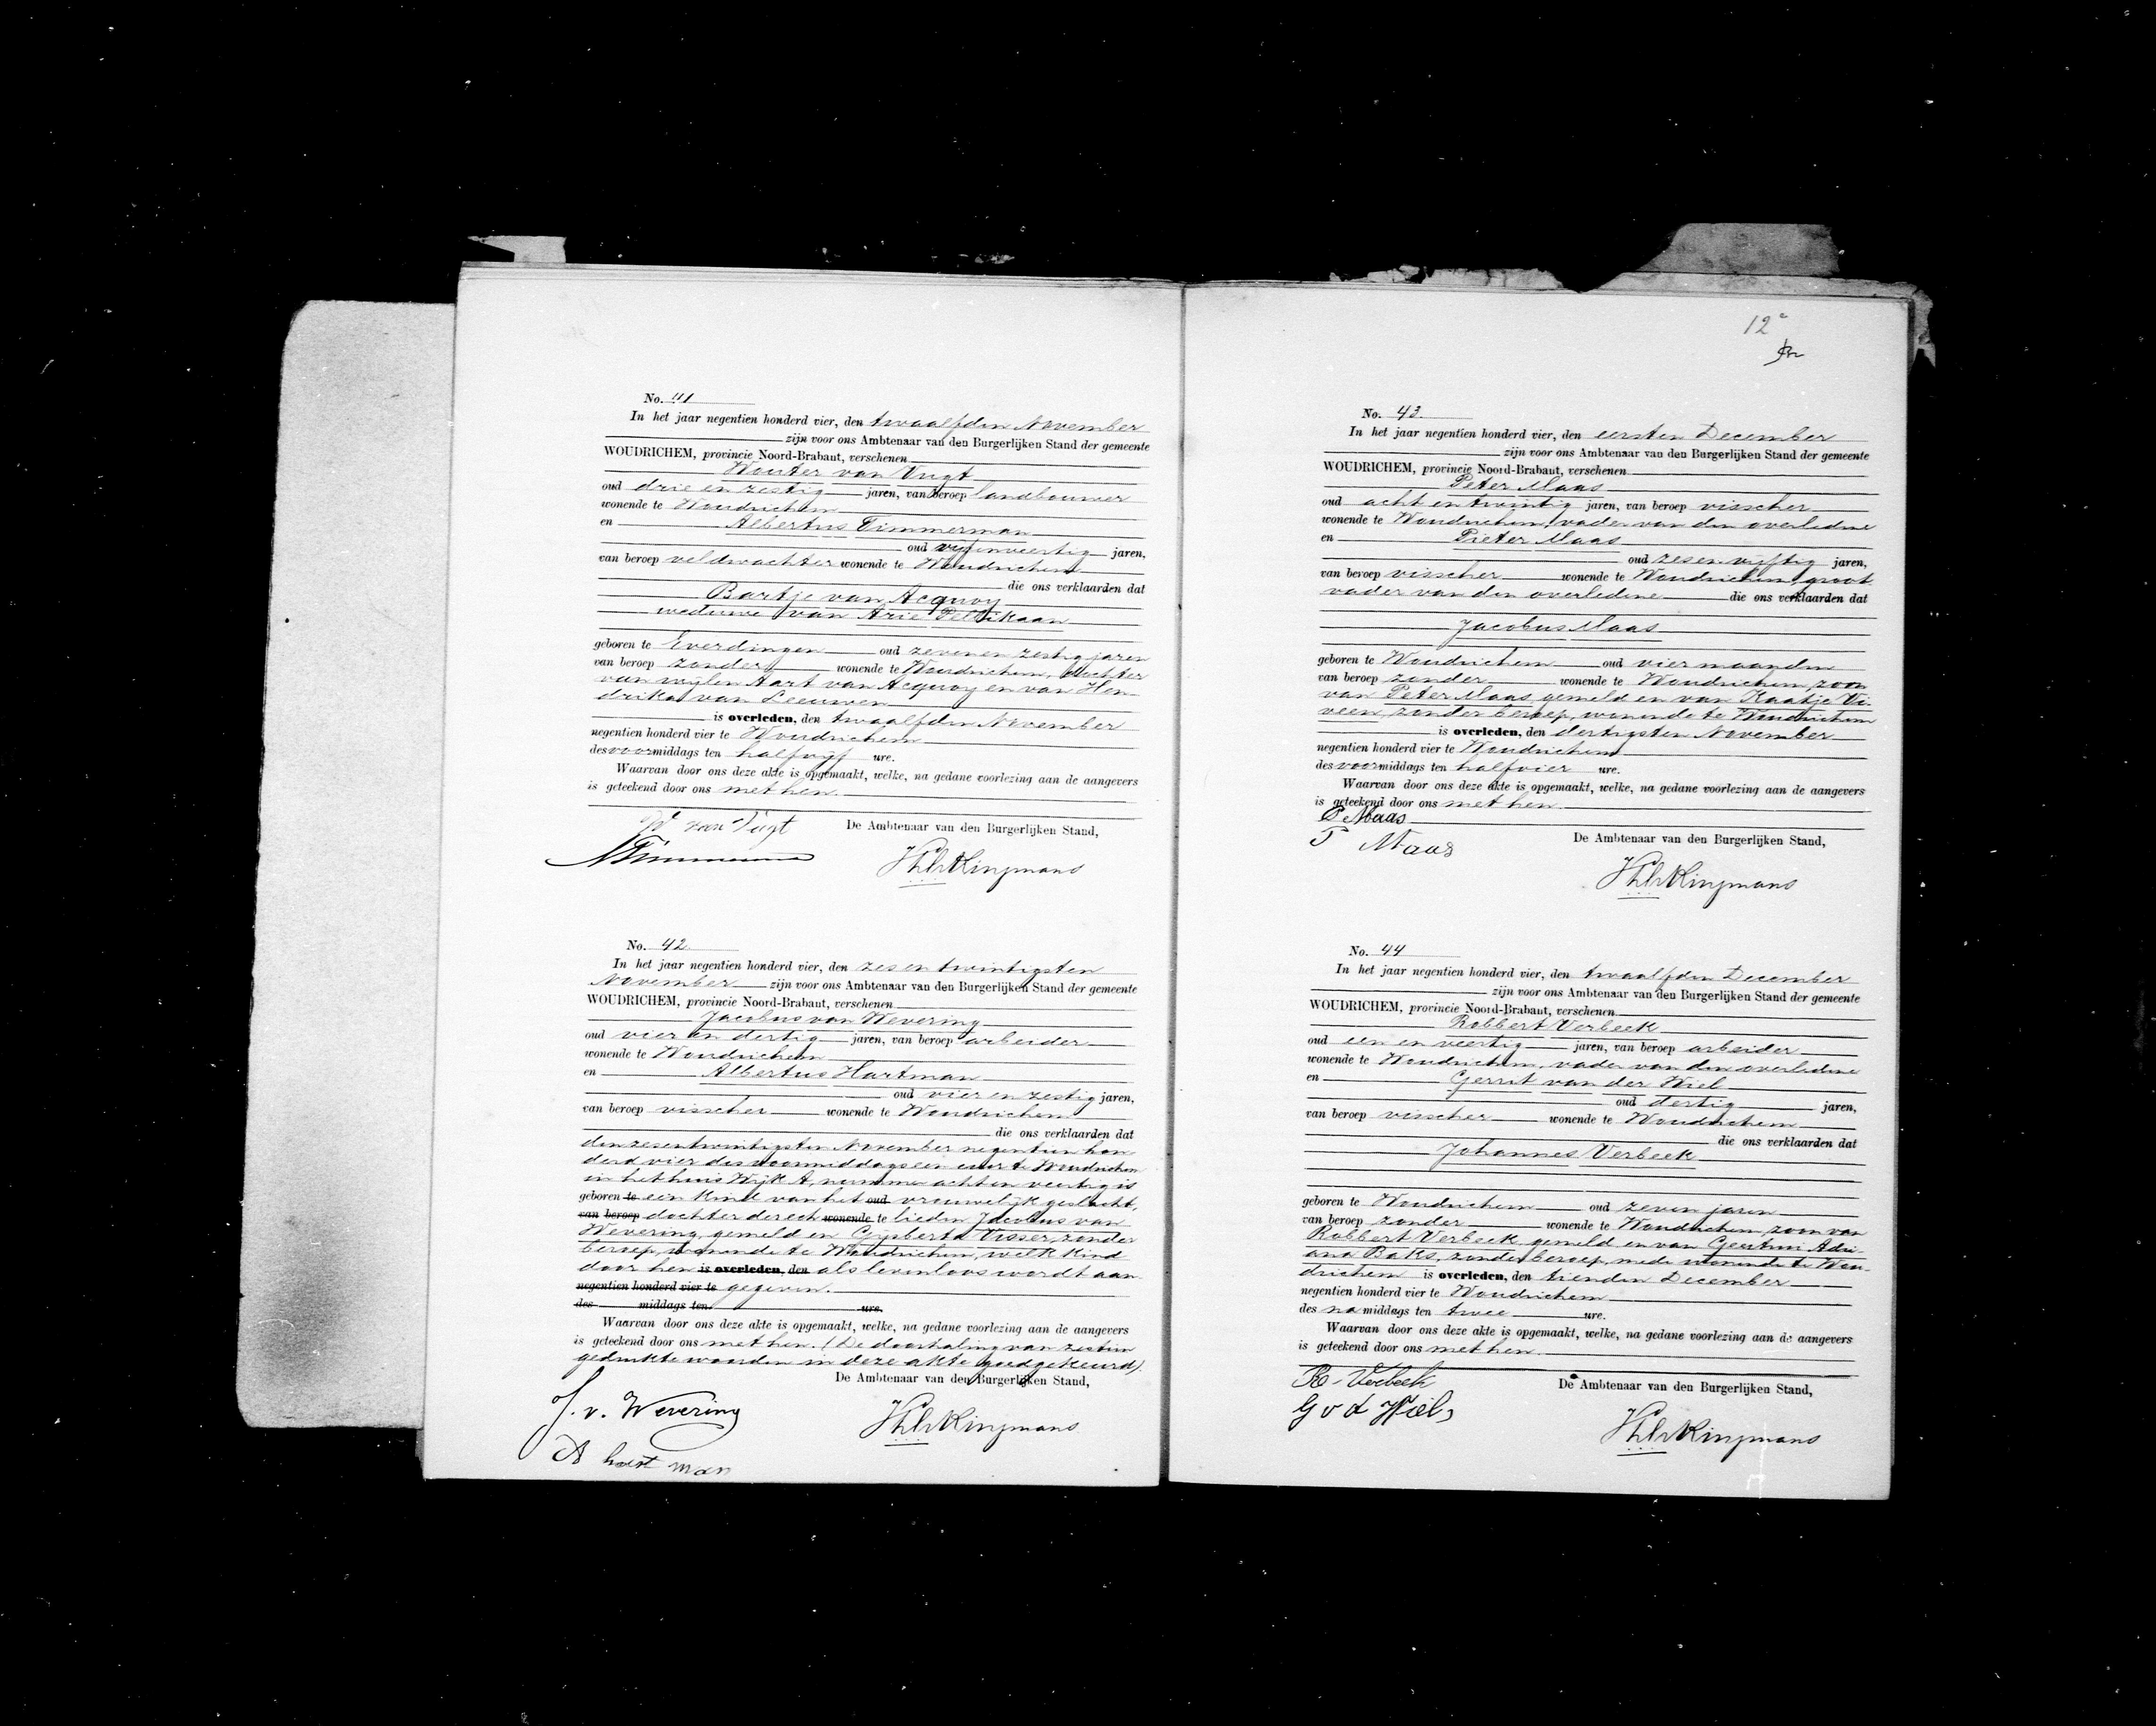 No. 41
In het jaar negentien honderd vier, den twaalfden November
zijn voor ons Ambtenaar van den Burgerlijken Stand der gemeente
WOUDRICHEM, provincie Noord-Brabant, verschenen
Wouter van Vugt
oud drie en zestig jaren, van beroep landbouwer
wonende te Woudrichem
en Albertus Timmerman
oud vijfenveertig jaren,
van beroep veldwachter wonende te Woudrichem
die ons verklaarden dat
Bartje van Acquoy
weduwe van Arie Pellikaan
geboren te Everdingen oud zeven en zestig jaren
van beroep zonder wonende te Woudrichem, dochter
van wijlen Aart van Acquoy en van Hen-
drika van Leeuwen
is overleden, den twaalfden November
negentien honderd vier te Woudrichem
des voormiddags ten halfvijf ure.
Waarvan door ons deze akte is opgemaakt, welke, na gedane voorlezing aan de aangevers
is geteekend door ons met hen.
W van Vugt De Ambtenaar van den Burgerlijken Stand,
ATimmerman
Kingmans
No. 42
In het jaar negentien honderd vier, den zes en twintigsten
November zijn voor ons Ambtenaar van den Burgerlijken Stand der gemeente
WOUDRICHEM, provincie Noord-Brabant, verschenen
Jacobus van Wevering
oud vier en dertig jaren, van beroep arbeider
wonende te Woudrichem
en Albertus Hartman
oud vier en zestig jaren,
van beroep visscher wonende te Woudrichem
die ons verklaarden dat
den zesentwintigsten November negentien hon
derd vier des voormiddags een ure te Woudrichem
in het huis Wijk A, nummer acht en veertig is
geboren te een kind van het oud vrouwelijk geslacht,
van beroep dochter der echt wonende te lieden Jacobus van
Wevering, gemeld en Gijsberta Visser, zonder
beroep, wonende te Woudrichem, welk kind
door hen is overleden, den als levenloos wordt aan
negentien honderd vier te gegeven.
des middags ten ure.
Waarvan door ons deze akte is opgemaakt, welke, na gedane voorlezing aan de aangevers
is geteekend door ons met hen. (De doorhaling van zestien
gedrukte woorden in deze akte goedgekeurd).
De Ambtenaar van den Burgerlijken Stand,
J. v. Wevering
Kingmans
A hart man
12
No. 43.
In het jaar negentien honderd vier, den eersten December
zijn voor ons Ambtenaar van den Burgerlijken Stand der gemeente
WOUDRICHEM, provincie Noord-Brabant, verschenen
Peter Maas
oud acht en twintig jaren, van beroep visscher
wonende te Woudrichem, vader van den overledene
en Pieter Maas
oud zes en vijftig jaren,
van beroep visscher wonende te Woudrichem, groot
vader van den overledene die ons verklaarden dat
Jacobus Maas
geboren te Woudrichem oud vier maanden
van beroep zonder wonende te Woudrichem, zoon
van Peter Maas, gemeld en van Kaatje Vi-
veen, zonder beroep, wonende te Woudrichem
is overleden, den dertigsten November
negentien honderd vier te Woudrichem
des voormiddags ten halfvier ure.
Waarvan door ons deze akte is opgemaakt, welke, na gedane voorlezing aan de aangevers
is geteekend door ons met hen.
P Maas
P Maas De Ambtenaar van den Burgerlijken Stand,
Kingmans
No. 44
In het jaar negentien honderd vier, den twaalfden December
zijn voor ons Ambtenaar van den Burgerlijken Stand der gemeente
WOUDRICHEM, provincie Noord-Brabant, verschenen
Robbert Verbeek
oud een en veertig jaren, van beroep arbeider
wonende te Woudrichem, vader van den overledene
en Gerrit van der Wiel
oud dertig jaren,
van beroep visscher wonende te Woudrichem
die ons verklaarden dat
Johannes Verbeek
geboren te Woudrichem oud zeven jaren
van beroep zonder wonende te Woudrichem, zoon van
Robbert Verbeek, gemeld en van Geertrui Adri-
ana Baks, zonder beroep, mede wonende te Wou-
drichem is overleden, den tienden December
negentien honderd vier te Woudrichem
des namiddags ten twee ure.
Waarvan door ons deze akte is opgemaakt, welke, na gedane voorlezing aan de aangevers
is geteekend door ons met hen.
R. Verbeek De Ambtenaar van den Burgerlijken Stand,
G v d Wiel
Kingmans